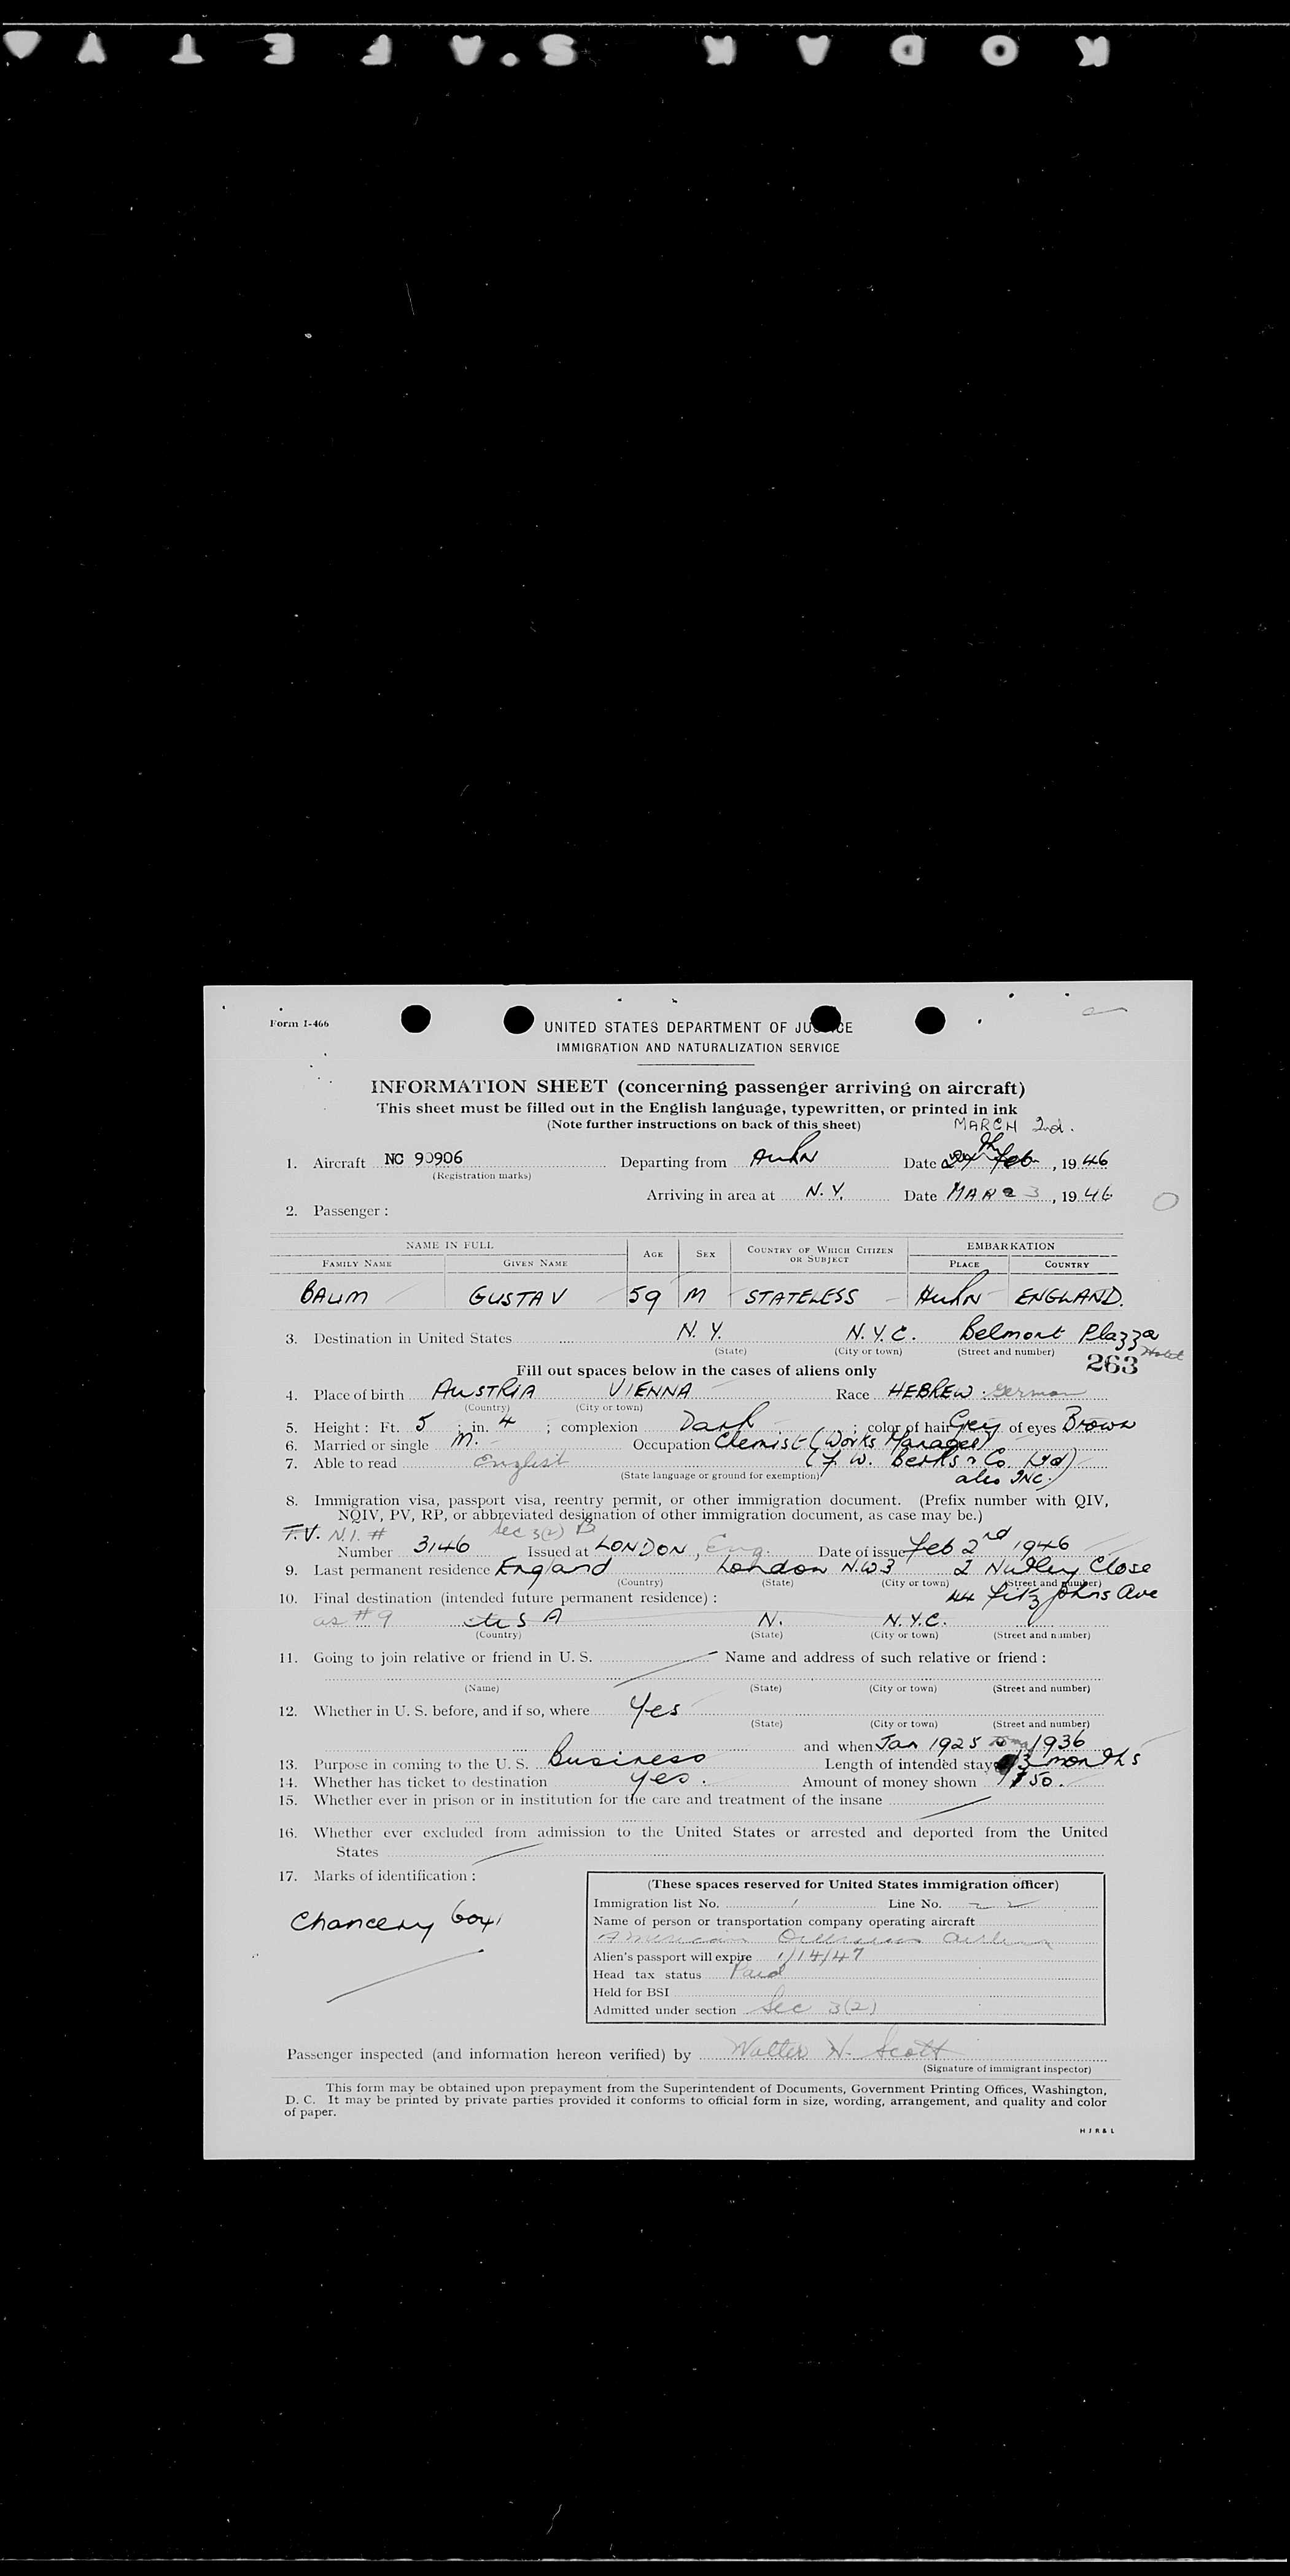 KODAK S.'AFETY
Form I-466
UNITED STATES DEPARTMENT OF JUSTICE
IMMIGRATION AND NATURALIZATION SERVICE
INFORMATION SHEET (concerning passenger arriving on aircraft)
This sheet must be filled out in the English language, typewritten, or printed in ink
(Note further instructions on back of this sheet)
MARCH 2nd.
1. Aircraft NC 90906 Departing from Date Feb , 19 46
(Registration marks)
Arriving in area at N.Y. Date MAR 3 , 19 46
2. Passenger :
NAME IN FULL AGE SEX COUNTRY OF WHICH CITIZEN OR SUBJECT EMBARKATION
FAMILY NAME GIVEN NAME PLACE COUNTRY
BAUM GUSTAV 59 M STATELESS ENGLAND.
3. Destination in United States N.Y. N.Y.C. Belmont Plazza Hotel
(State) (City or town) (Street and number)
Fill out spaces below in the cases of aliens only 263
4. Place of birth AUSTRIA VIENNA Race HEBREW German
(Country) (City or town)
5. Height : Ft. 5 ; in. 4 ; complexion Dark ; color of hair Grey of eyes Brown
6. Married or single M. Occupation Chemist (Works Manager)
7. Able to read English (F. W. Berk & Co. Ltd)
(State language or ground for exemption) also INC.)
8. Immigration visa, passport visa, reentry permit, or other immigration document. (Prefix number with QIV,
NQIV, PV, RP, or abbreviated designation of other immigration document, as case may be.)
T.V. N.I. # Sec 3(2) B
Number 3146 Issued at LONDON, Eng. Date of issue Feb 2nd 1946
9. Last permanent residence England London N.W3 2 Nutley Close
(Country) (State) (City or town) (Street and number)
10. Final destination (intended future permanent residence) : 44 Fitzjohns Ave
as # 9 U S A N. N.Y.C.
(Country) (State) (City or town) (Street and number)
11. Going to join relative or friend in U. S. Name and address of such relative or friend :
(Name) (State) (City or town) (Street and number)
12. Whether in U. S. before, and if so, where Yes
(State) (City or town) (Street and number)
and when Jan 1925 to 1936
13. Purpose in coming to the U. S. Business Length of intended stay 3 months
14. Whether has ticket to destination yes. Amount of money shown 150.
15. Whether ever in prison or in institution for the care and treatment of the insane
16. Whether ever excluded from admission to the United States or arrested and deported from the United
States
17. Marks of identification :
Chancery 6041
(These spaces reserved for United States immigration officer)
Immigration list No. 1 Line No. 22
Name of person or transportation company operating aircraft
American Overseas Airlines
Alien's passport will expire 1/14/47
Head tax status Paid
Held for BSI
Admitted under section Sec 3(2)
Passenger inspected (and information hereon verified) by Walter H. Scott
(Signature of immigrant inspector)
This form may be obtained upon prepayment from the Superintendent of Documents, Government Printing Offices, Washington,
D. C. It may be printed by private parties provided it conforms to official form in size, wording, arrangement, and quality and color
of paper.
H J R & L